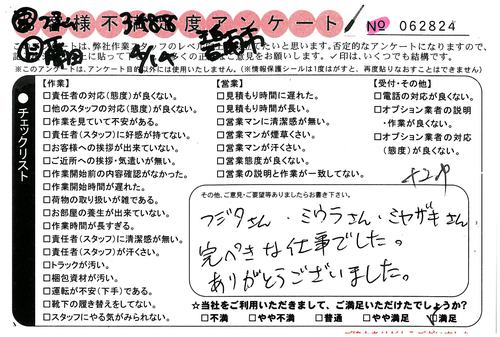 お客様満足度アンケート
No 062824
このアンケートは、弊社作業スタッフのレベル
にしたいと思います。否定的なアンケートになりますので、
ご意見をお願いします。✓印は、いくつでも結構です。
※このアンケートは、アンケート目的以外には使用いたしません。(※情報保護シールは1度はがすと、再度貼りなおすことはできません)
●チェックリスト
【作業】
□責任者の対応(態度)が良くない。
□他のスタッフの対応(態度)が良くない。
□作業を見ていて不安がある。
□責任者(スタッフ)に好感が持てない。
□お客様への挨拶が出来ていない。
□ご近所への挨拶・気遣いが無い。
□作業開始前の内容確認がなかった。
□作業開始時間が遅れた。
□荷物の取り扱いが雑である。
□お部屋の養生が出来ていない。
□作業時間が長すぎる。
□責任者(スタッフ)に清潔感が無い。
□責任者(スタッフ)が汗くさい。
□トラックが汚い。
□梱包資材が汚い。
□運転が不安(下手)である。
□靴下の履き替えをしてない。
□スタッフにやる気がみられない。
【営業】
□見積もり時間に遅れた。
□見積もり時間が長い。
□営業マンに清潔感が無い。
□営業マンが煙草くさい。
□営業マンが汗くさい。
□営業態度が良くない。
□営業の説明と作業が一致してない。
【受付・その他】
□電話の対応が良くない。
□オプション業者の説明
・作業が良くない。
□オプション業者の対応
(態度)が良くない。
その他、ご意見・ご要望等ありましたらお書き下さい。
フジタさん・ミウラさん・ミヤザキさん
完ぺきな仕事でした。
ありがとうございました。
☆当社をご利用いただきまして、ご満足いただけたでしょうか?
□不満 □やや不満 □普通 □やや満足 ☑満足